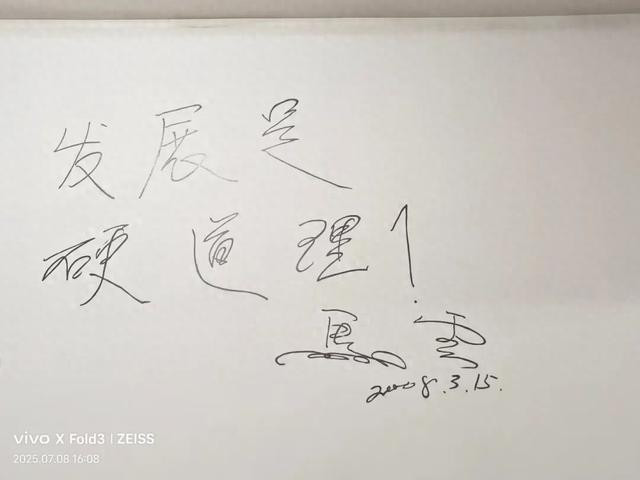 发展是
硬道理！
馬雲
2008.3.15.
vivo X Fold3 | ZEISS
2025.07.08 16:08